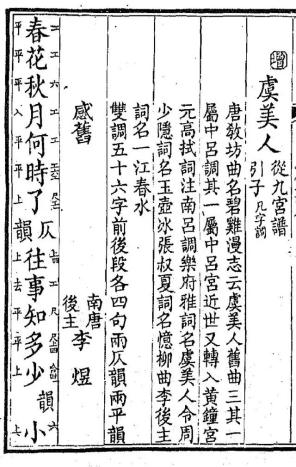 增 虞美人 從九宮譜
引子 凡字調
唐敎坊曲名碧雞漫志云虞美人舊曲三其一
屬中呂調其一屬中呂宮近世又轉入黃鐘宮
元高拭詞注南呂調樂府雅詞名虞美人令周
少隱詞名玉壺冰張叔夏詞名憶柳曲李後主
詞名一江春水
雙調五十六字前後段各四句兩仄韻兩平韻
感舊 南唐後主 李煜
春花秋月何時了韻仄往事知多少韻小
平平平入平平上 上去平平上